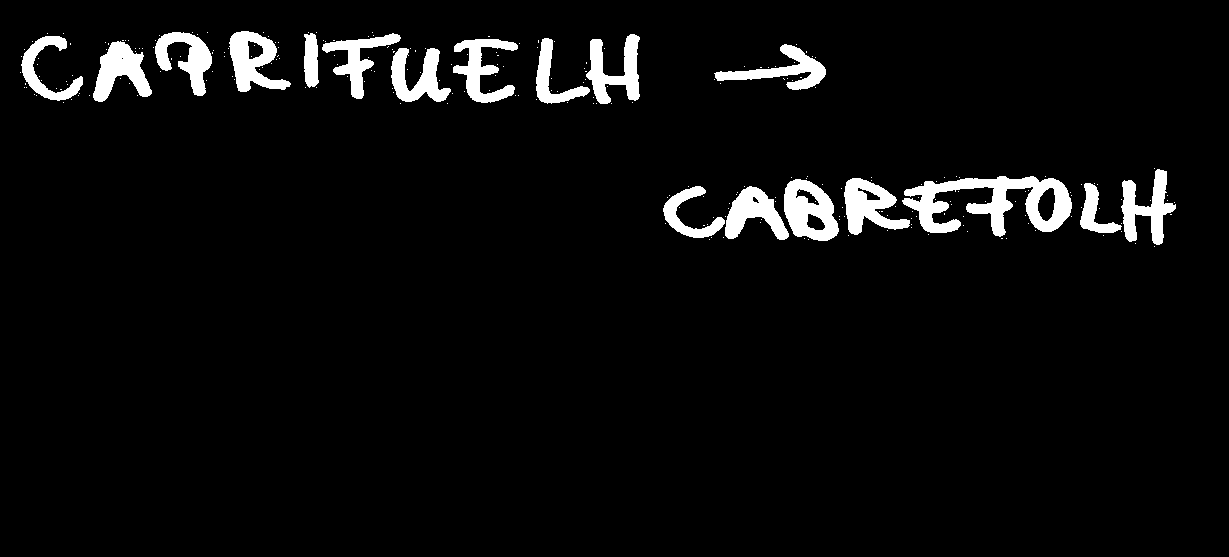 CAPRIFUELH →
CABREFOLH